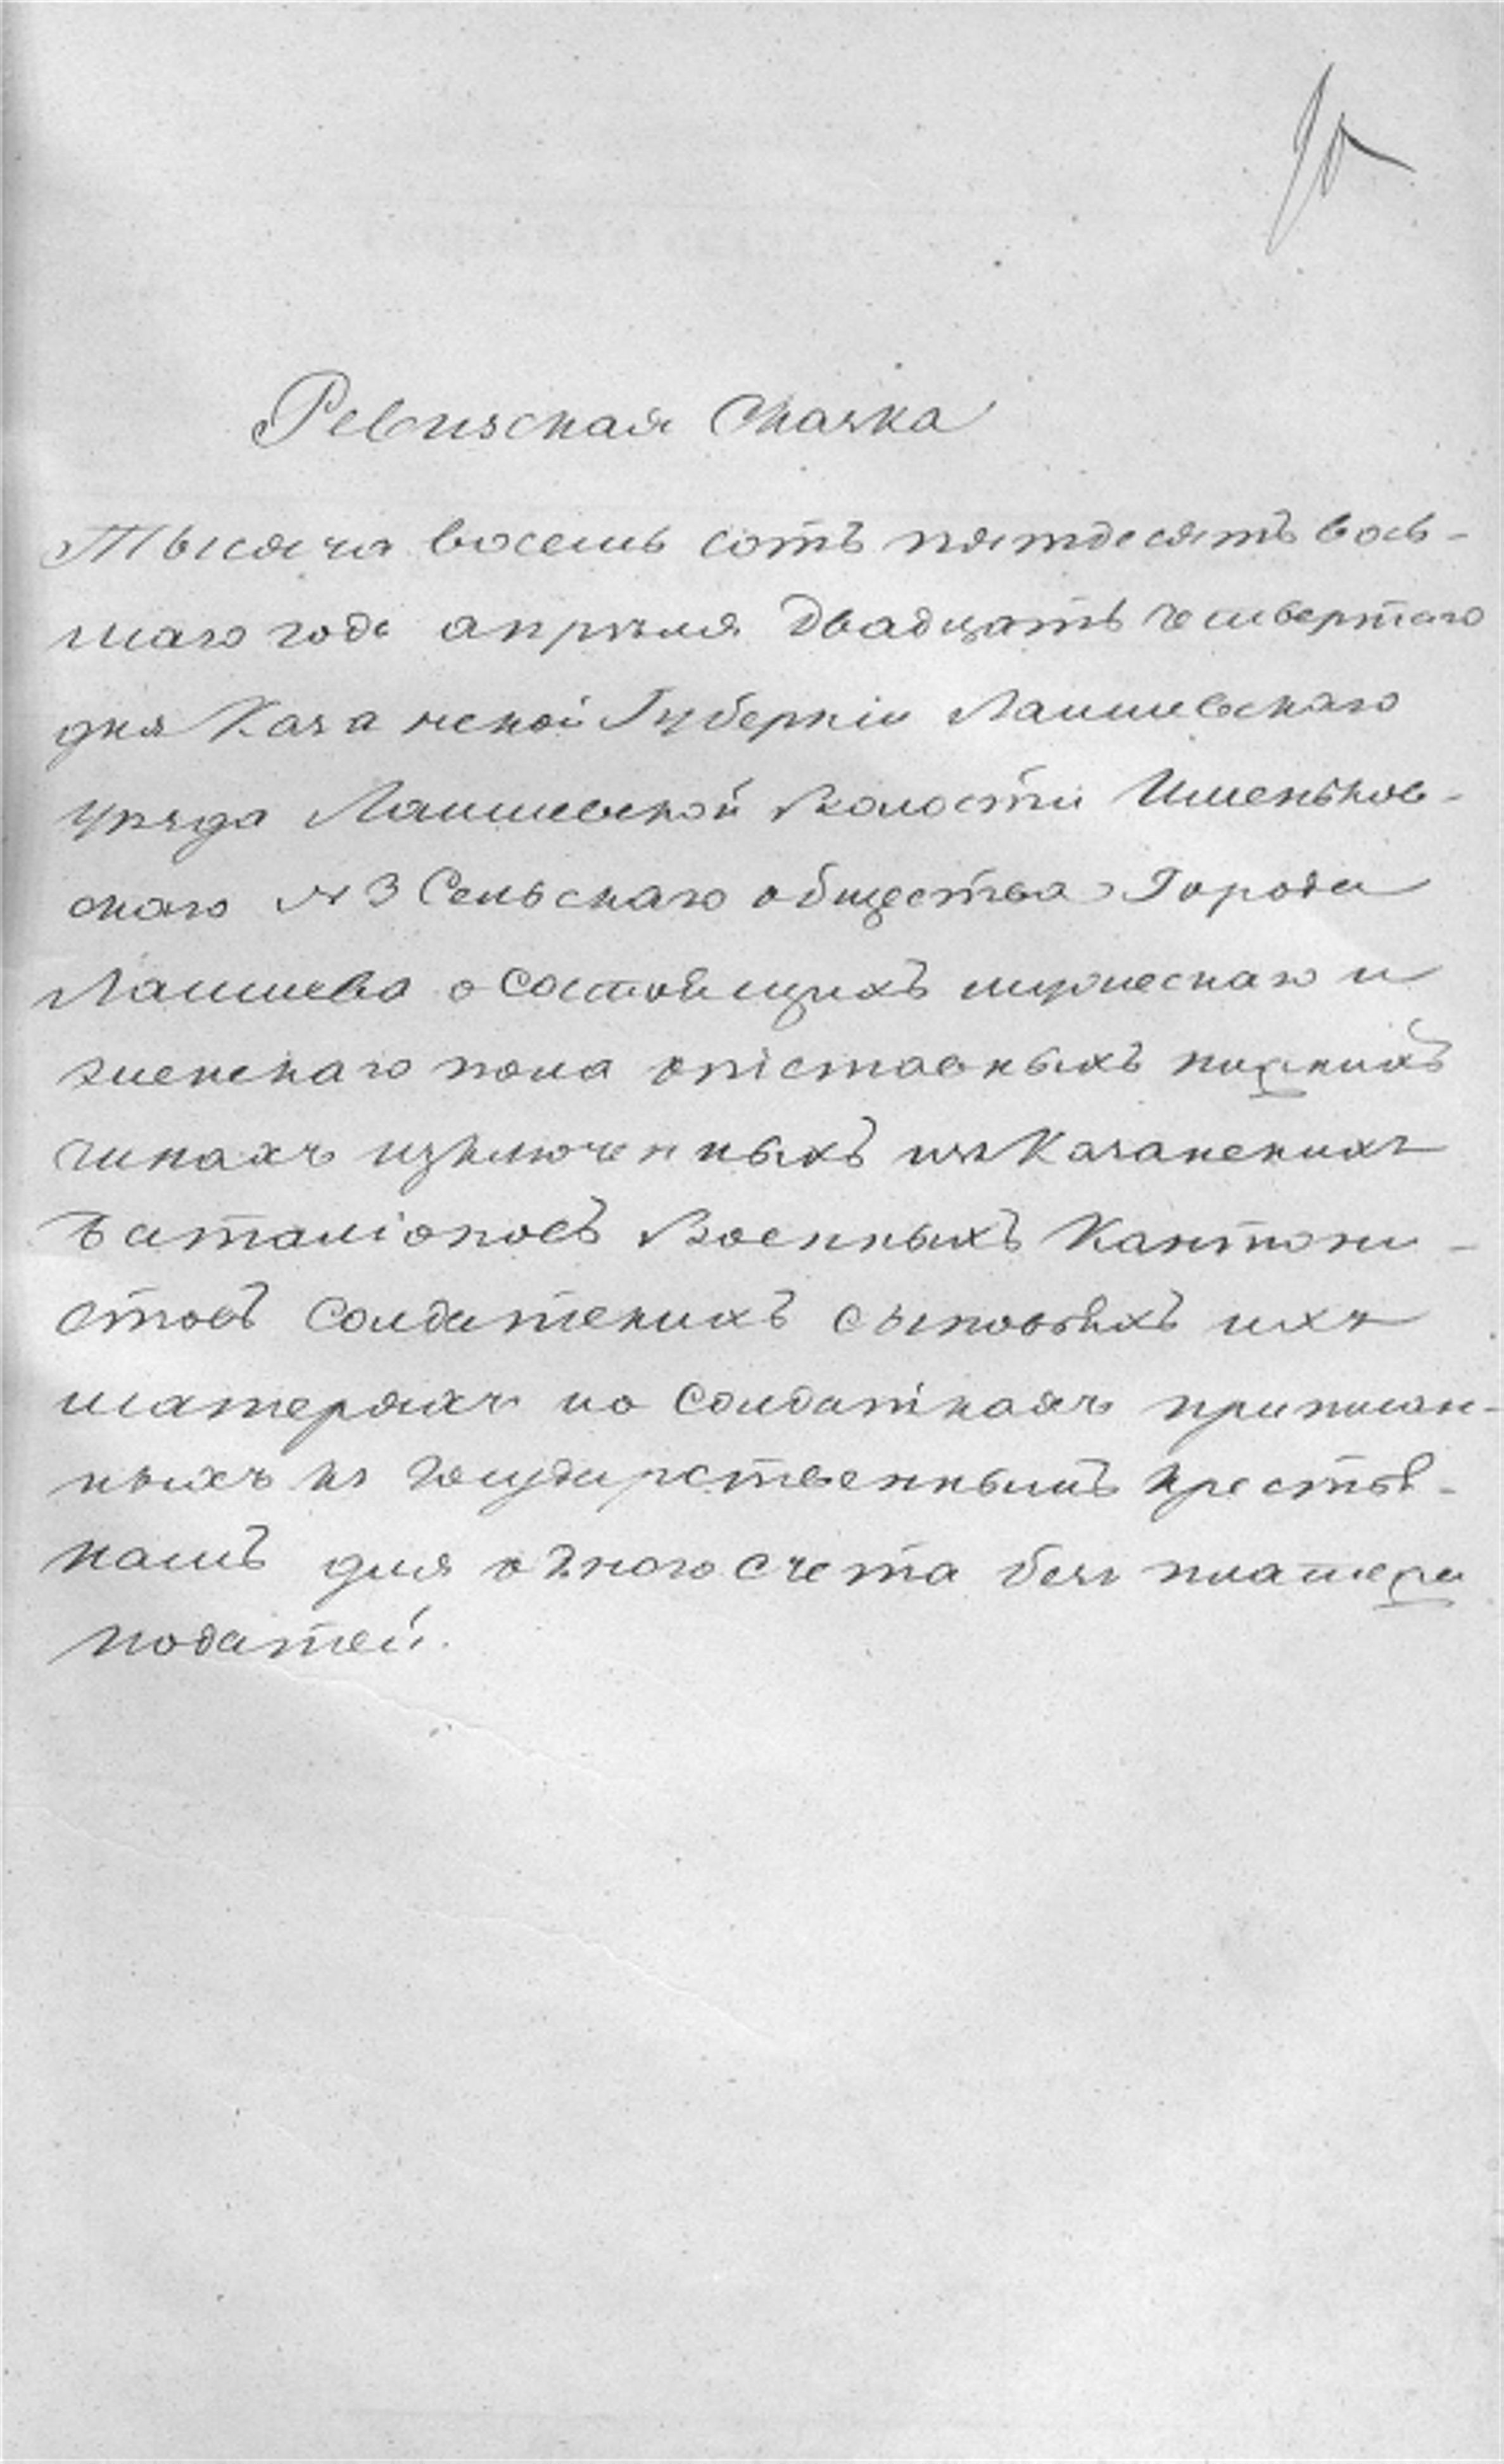 Ревизская Сказка
Тысяча восемь сотъ пятдесятъ вось-
маго года апреля двадцать четвертаго
дня Казанской Губерніи Лаишевскаго
уезда Лаишевской Волости Именьков-
скаго №3 Сельскаго общества Города
Лаишева о состоящихъ мужескаго и
женскаго пола отставныхъ нижнихъ
чинахъ изключенныхъ изъ Казанскихъ
Баталіоновъ Военныхъ Кантони-
стовъ солдатскихъ сыновьяхъ ихъ
матеряхъ и о Солдаткахъ приписан-
ныхъ къ Государственнымъ крестья-
намъ для однаго счета безъ платежа
податей.